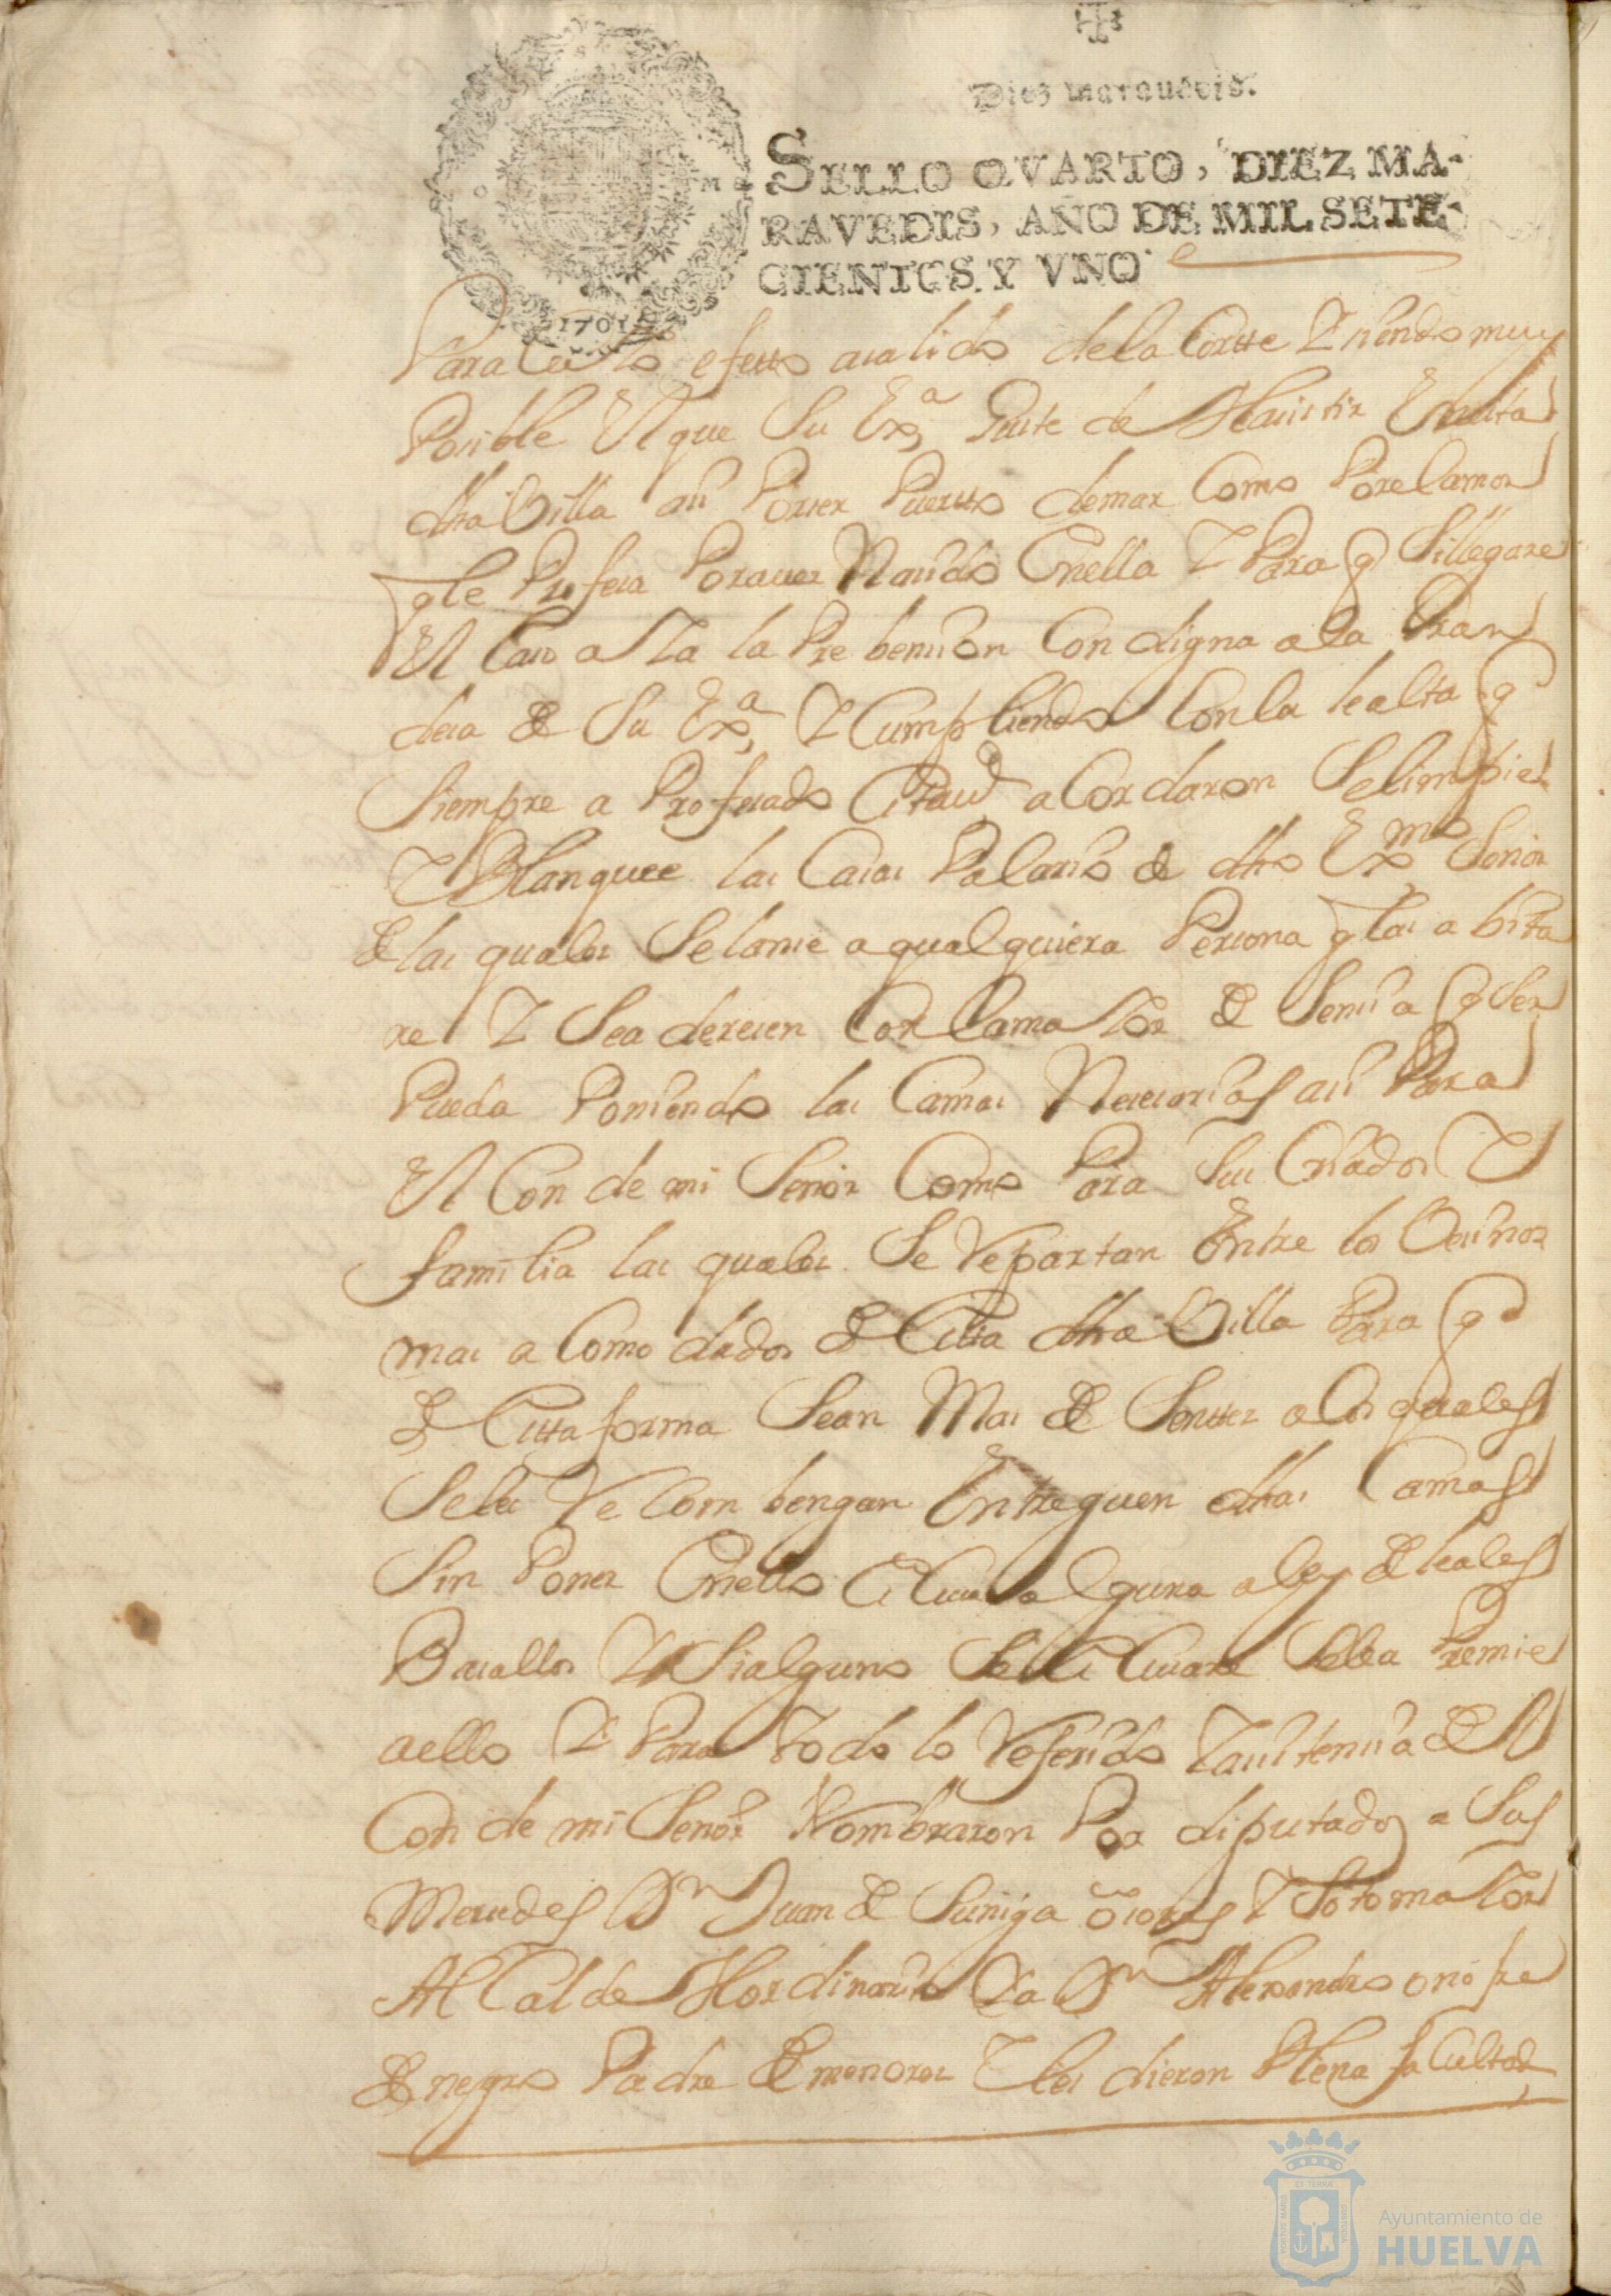 Diez maravedis.
SELLO QVARTO, DIEZ MA-
RAVEDIS, AÑO DE MIL SETE-
CIENTOS. Y VNO
1701
Para efetto asalido dela Cortte Y siendo muy
Posible El que Su Exª, guste de Hasistir En esta
dha Villa asi Porser Puertto demar Como Porel amor
qle Profesa Poraver Nasido Enella Y Para q Sillegare
El Caso aYa la Prebension Condigna ala Gran
desa de Su Exª, Y Cumpliendo Conla lealta q
Siempre a Profesado Esta acordaron Selimpie
Y Blanquee las Casas Palasio de dho Exmo Señor
de las quales Selanse aqualquiera Persona qlas abita
re Y Sea deresen Con lamaYor desensia q Ser
Pueda Poniendo las Camas Nesesarias asi Para
El Conde mi Señor Como Para Sus Criados Y
familia las quales Se Repartan Entre los Vesinos
mas acomodados de Esta dha Villa Para q
de Esta forma Sean Mas desentes alos quales
Seles Recombengan Entreguen dhas Camas
Sin Poner Enello Escusa alguna aley de leales
Basallos Y Sialguno Se Escusare Selea Premie
aello Y Para todo lo Referido Y asistensia del
Conde mi Señor Nombraron Por diputados a Sus
Mersedes Dn Juan de Suñiga Y SotomaYor
Alcalde Hordinario Y a Dn Alexandro onofre
de negro Padre de menores Y les dieron Plena facultad
Ayuntamiento de
HUELVA